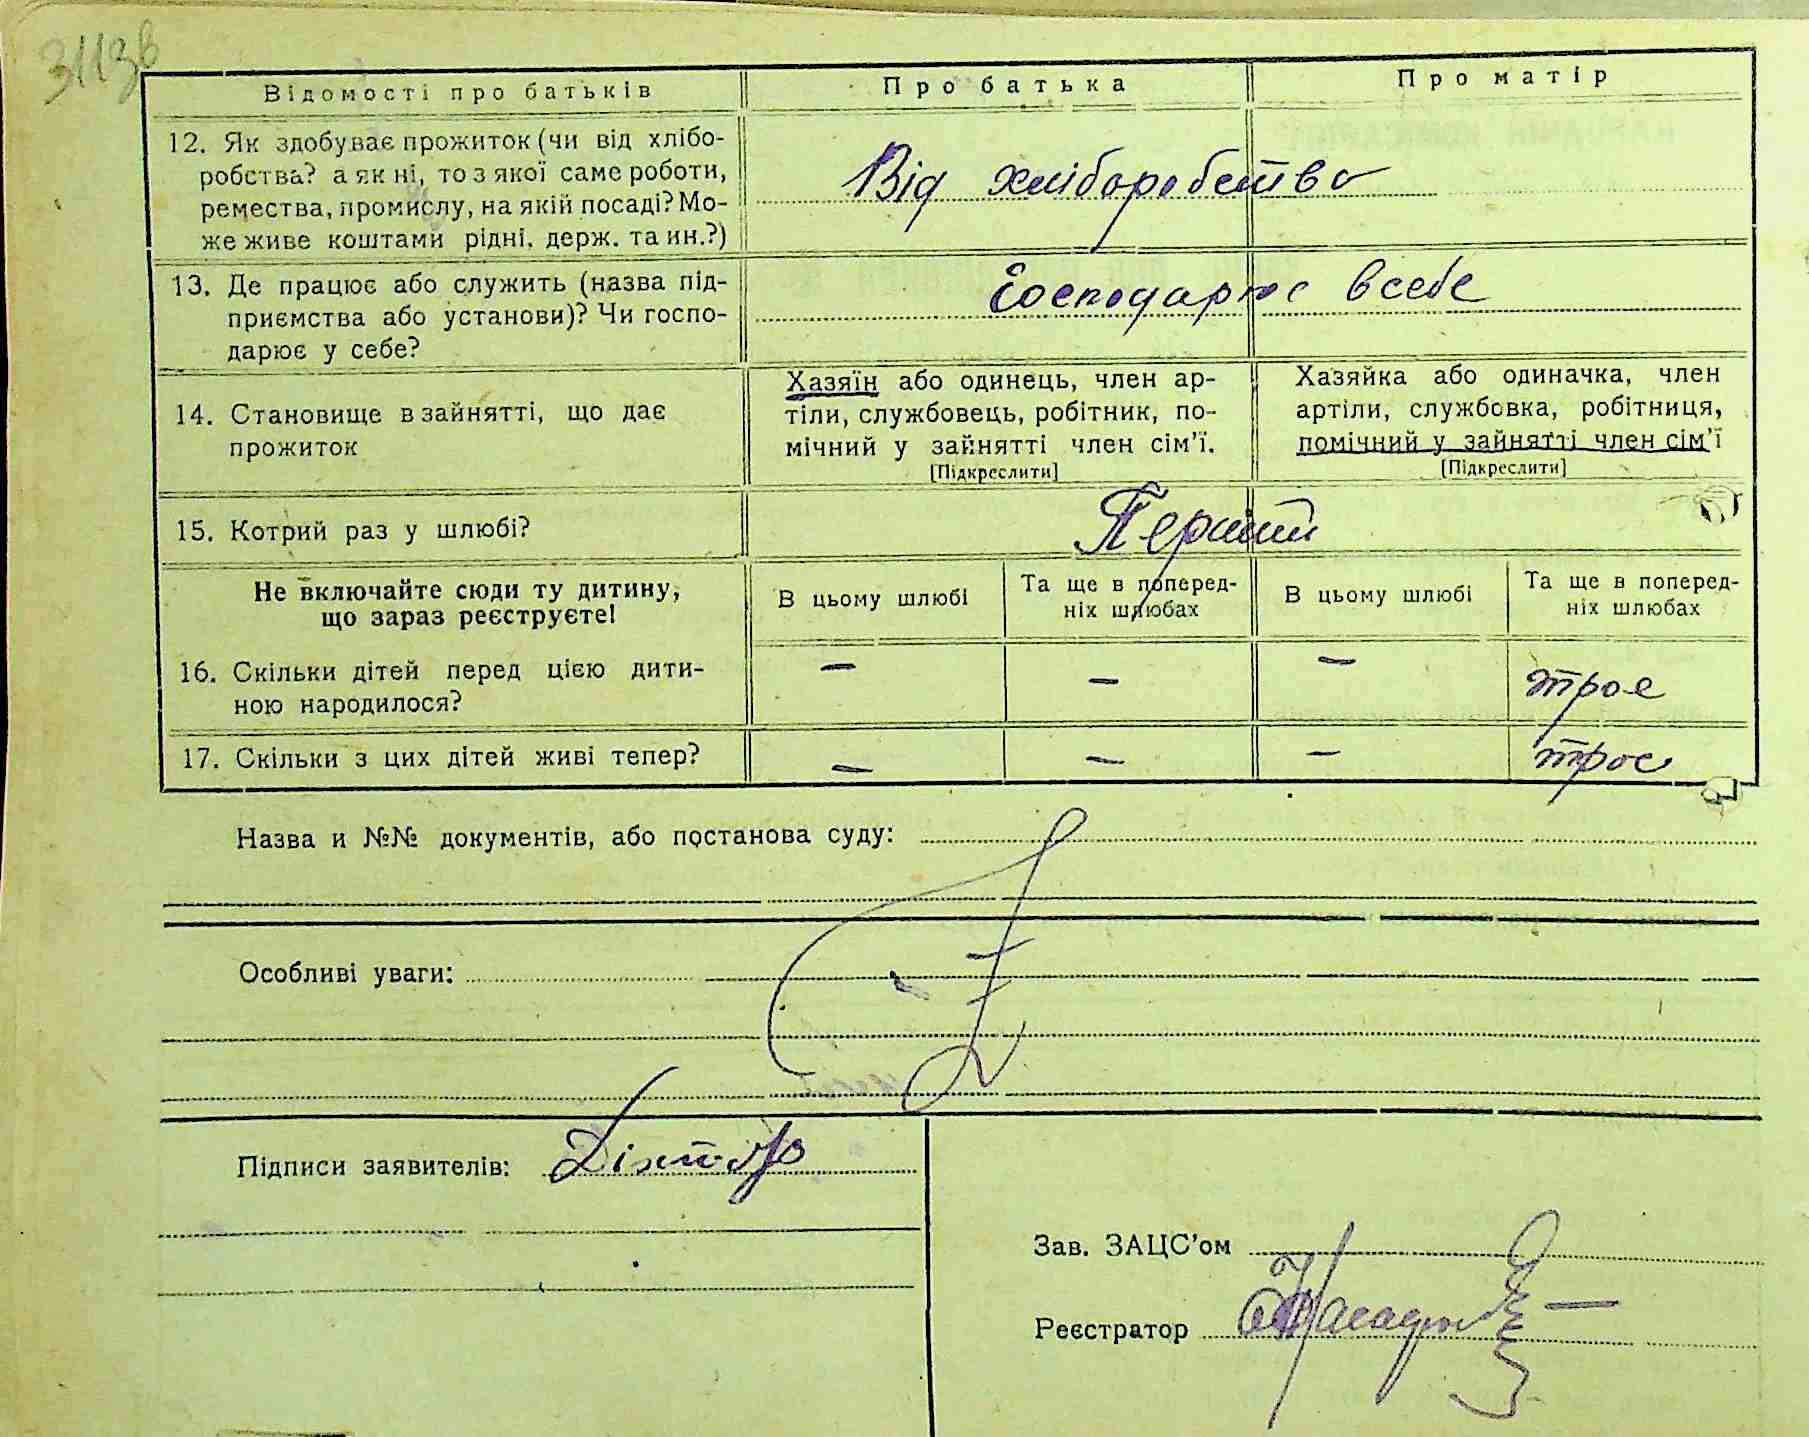 311зв
Відомості про батьків Про батька Про матір
12. Як здобуває прожиток (чи від хлібо-
робства? а як ні, то з якої саме роботи,
ремества, промислу, на якій посаді? Мо-
же живе коштами рідні, держ. та ин.?)
Від хліборобства
13. Де працює або служить (назва під-
приємства або установи)? Чи госпо-
дарює у себе?
Господарює в себе
14. Становище в зайнятті, що дає
прожиток
Хазяїн або одинець, член ар-
тіли, службовець, робітник, по-
мічний у зайнятті член сім'ї.
[Підкреслити]
Хазяйка або одиначка, член
артіли, службовка, робітниця,
помічний у зайнятті член сім'ї
[Підкреслити]
15. Котрий раз у шлюбі?
Перший
Не включайте сюди ту дитину,
що зараз реєструєте!
В цьому шлюбі
Та ще в поперед-
ніх шлюбах
В цьому шлюбі
Та ще в поперед-
ніх шлюбах
16. Скільки дітей перед цією дити-
ною народилося?
— — — троє
17. Скільки з цих дітей живі тепер?
— — — троє
Назва и №№ документів, або постанова суду:
Особливі уваги:
Підписи заявителів:
Зав. ЗАЦС'ом
Реєстратор